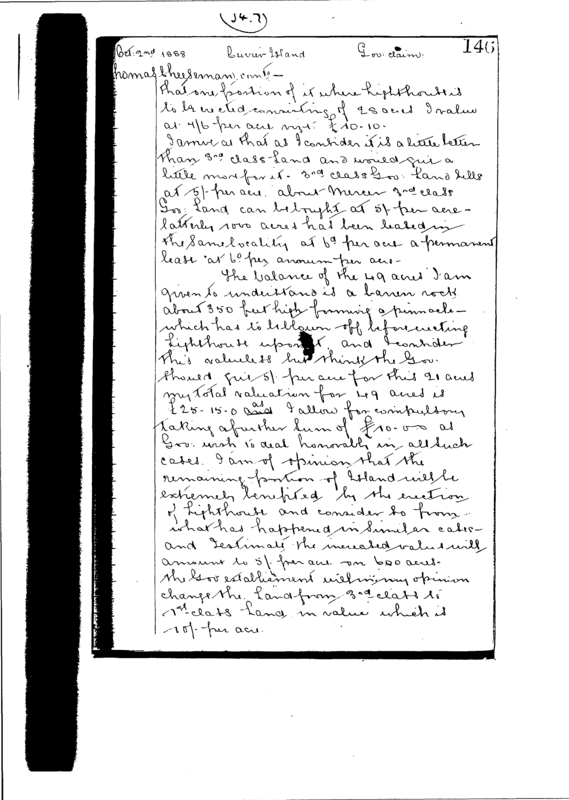 (J4.7)
146
Oct. 2nd 1888 Cuvier Island Gov. claim.
Thomas Cheeseman) contd –
that one portion of it where lighthouse is
to be erected consisting of 28 acres I value
at 7/6 per acre viz. £10-10-
I arrive at that as I consider it is a little better
than 3rd class Land and would give a
little more for it. 3rd class Gov. Land sells
at 5/- per acre. about Mercer 3rd class
Gov: Land can be bought at 5/- per acre –
latterly 1000 acres has been leased in
the same locality at 6d per acre a permanent
lease at 6d per annum per acre –
The balance of the 49 acres I am
given to understand is a barren rock
about 350 feet high forming a pinnacle –
which has to be blown off before erecting
Lighthouse upon it, and I consider
this valueless but think the Gov.
should give 5/- per acre for this 21 acres
my total valuation for 49 acres is
£25-15-0 as I allow for compulsory
taking a further sum of £10-0-0 as
Gov: wish to deal honorably in all such
cases. I am of opinion that the
remaining portion of Island will be
extremely benefited by the erection
of Lighthouse and consider so from
what has happened in similar cases –
and I estimate the increased value will
amount to 5/- per acre on 600 acres.
the Gov establishment will in my opinion
change the Land from 3rd class to
1st class Land in value which is
10/- per acre.